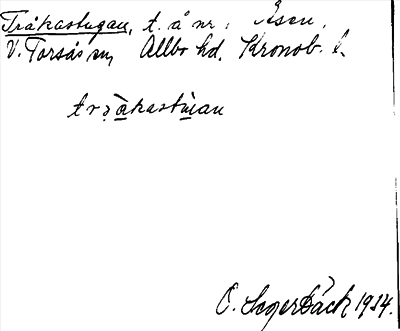 Tråkastugan, t. å nr 1 Åsen,
V. Torsås sn, Allbo hd. Kronob. l.
trǫ̀akastùan
O. Segerbäck 1934.